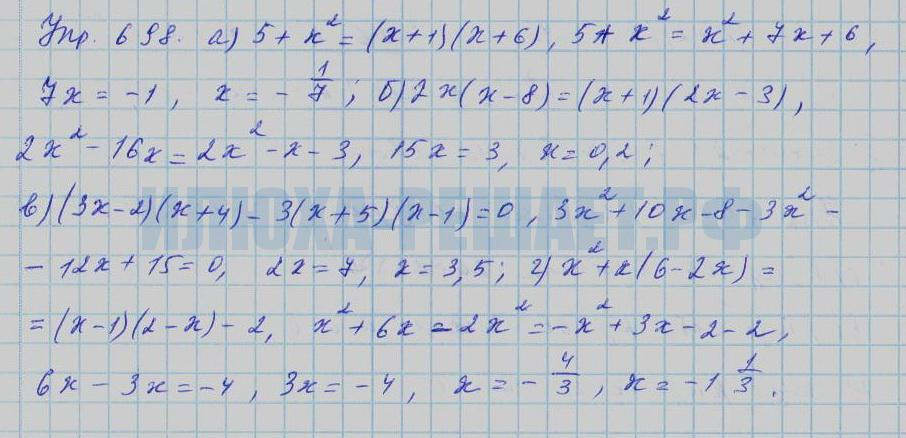 Упр. 698. а) 5 + x² = (x+1)(x+6), 5 + x² = x² + 7x + 6,
7x = -1, x = -1/7; б) 2x(x-8) = (x+1)(2x-3),
2x² - 16x = 2x² - x - 3, 15x = 3, x = 0,2;
в) (3x-2)(x+4) - 3(x+5)(x-1) = 0, 3x² + 10x - 8 - 3x² -
- 12x + 15 = 0, 2x = 7, x = 3,5; г) x² + x(6-2x) =
= (x-1)(2-x) - 2, x² + 6x - 2x² = -x² + 3x - 2 - 2,
6x - 3x = -4, 3x = -4, x = -4/3, x = -1 1/3.
ИЛЮХА-РЕШАЕТ.РФ